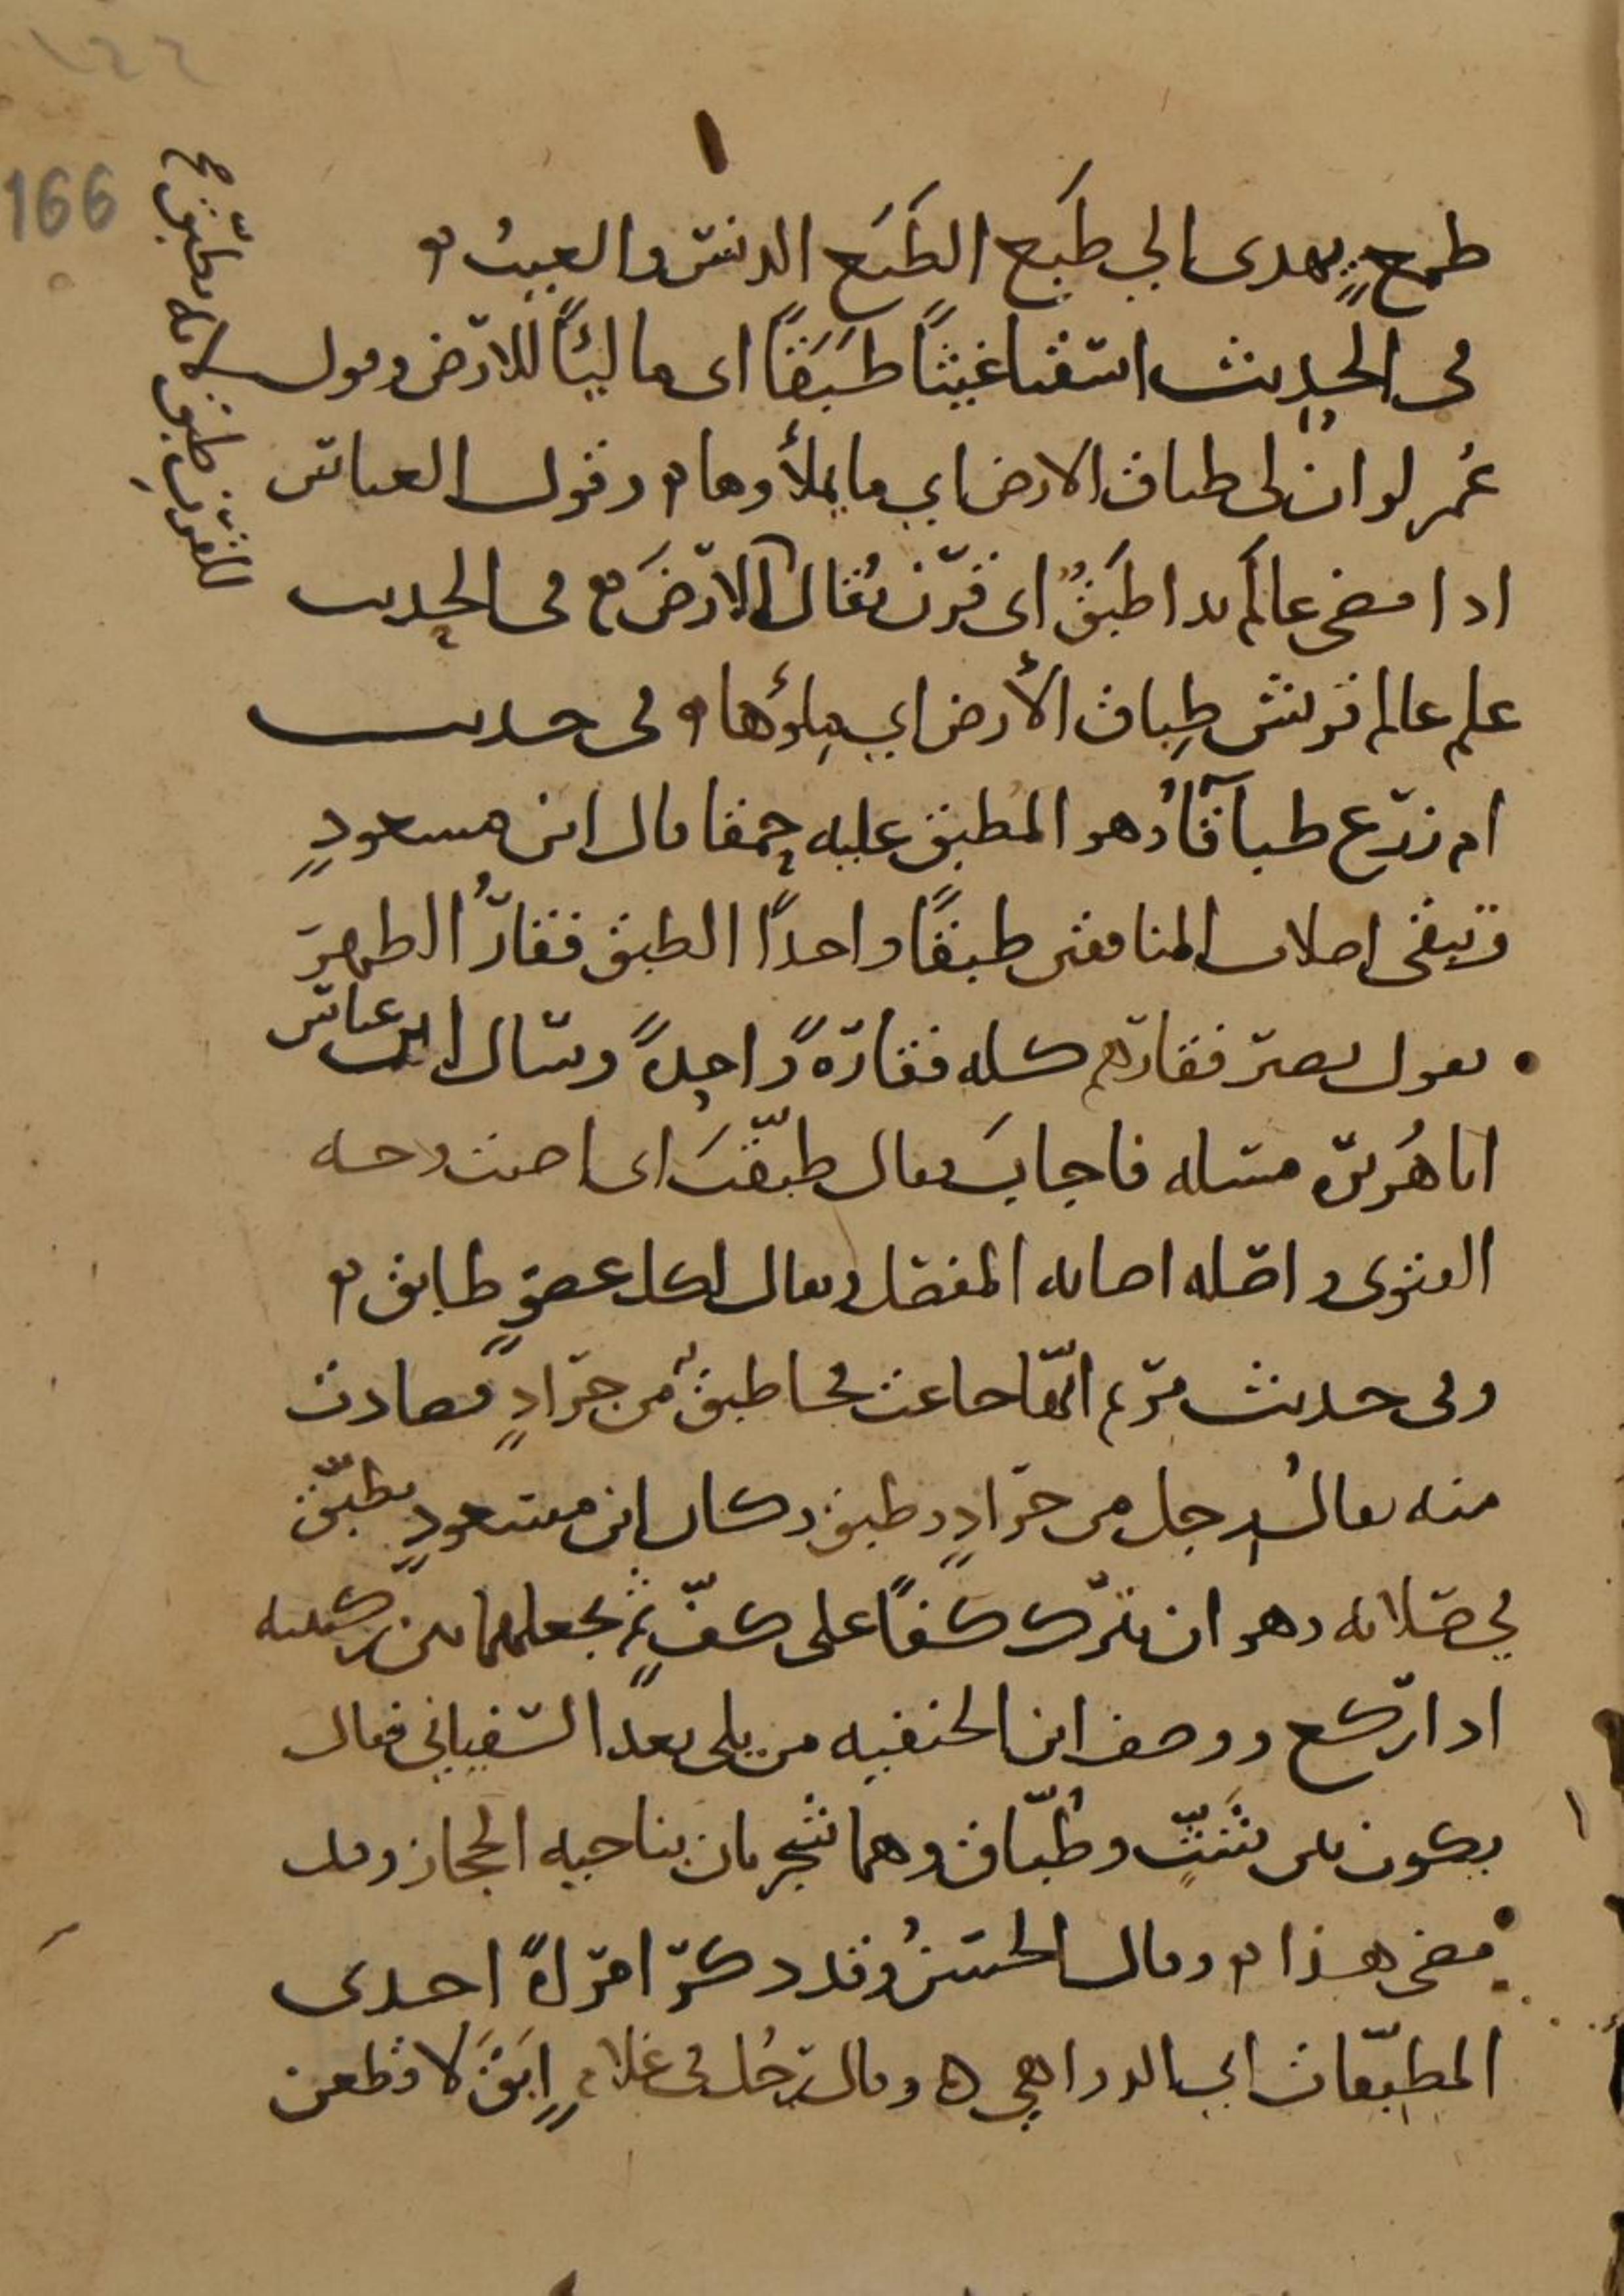 طمع يهدى الي طبع الطبع الدنس والعيب
فى الحديث اسقنا غيثا طبقا اى ماليا للارض وقول
عمر لو ان لى طباق الارض اي ما يملأوها وقول العباس
اذا مضى عالم بدا طبق اى قرن يقال الارض فى الحديث
علم عالم قريش طباق الأرض اي ملؤها وفى حديث
ام زرع طباقا وهو المطبق عليه حمقا قال ابن مسعود
وتبقى اصلاب المنافقين طبقا واحدا الطبق فقار الظهر
يقول يصير فقارهم كله فقارة واحدة وسال ابن عباس
ابا هريرة مسله فاجاب فقال طبقت اى اصبت وجه
الفتوى واصله اصابه المفصل ويقال لكل عضو طابق
وفى حديث مريم انها جاعت فجا طبق من جراد فصادت
منه يقال رجل من جراد وطبق وكان ابن مسعود يطبق
في صلاته وهو ان يترك كفا على كف ثم يجعلهما بين ركبتيه
اذا ركع ووصف ابن الحنفيه من يلى بعد السفيانى فقال
يكون بين شث وطباق وهما شجرتان بناحيه الحجاز وقد
مضى هذا وقال الحسن وقد ذكر امراة احدى
المطبقات اي الدواهي ه وقال رجل فى غلام ابق لاقطعن
166
١٦٦
للقرن طبق لانه يطبق